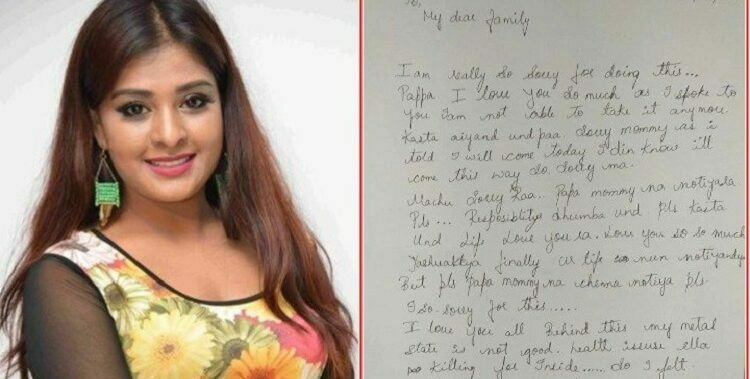 To,
My dear family
I am really so sorry for doing this...
Pappa I love you so much as I spoke to
you I am not able to take it anymore
Kasta aiyand und paa. Sorry mommy as i
told I will come today I din know i'll
come this way so sorry ma.
Machu sorry Raa.. Papa mommy na notiyala
Pls... Resposiblitys dhumba und pls kasta
Und life Love you ra. Love you so so much
finally life nun
But pls Papa mommy na chenna notiya pls
I so sorry for this.....
I love you all Behind this my metal
State is not good.. health issuse ella
Killing for Inside..... So I felt